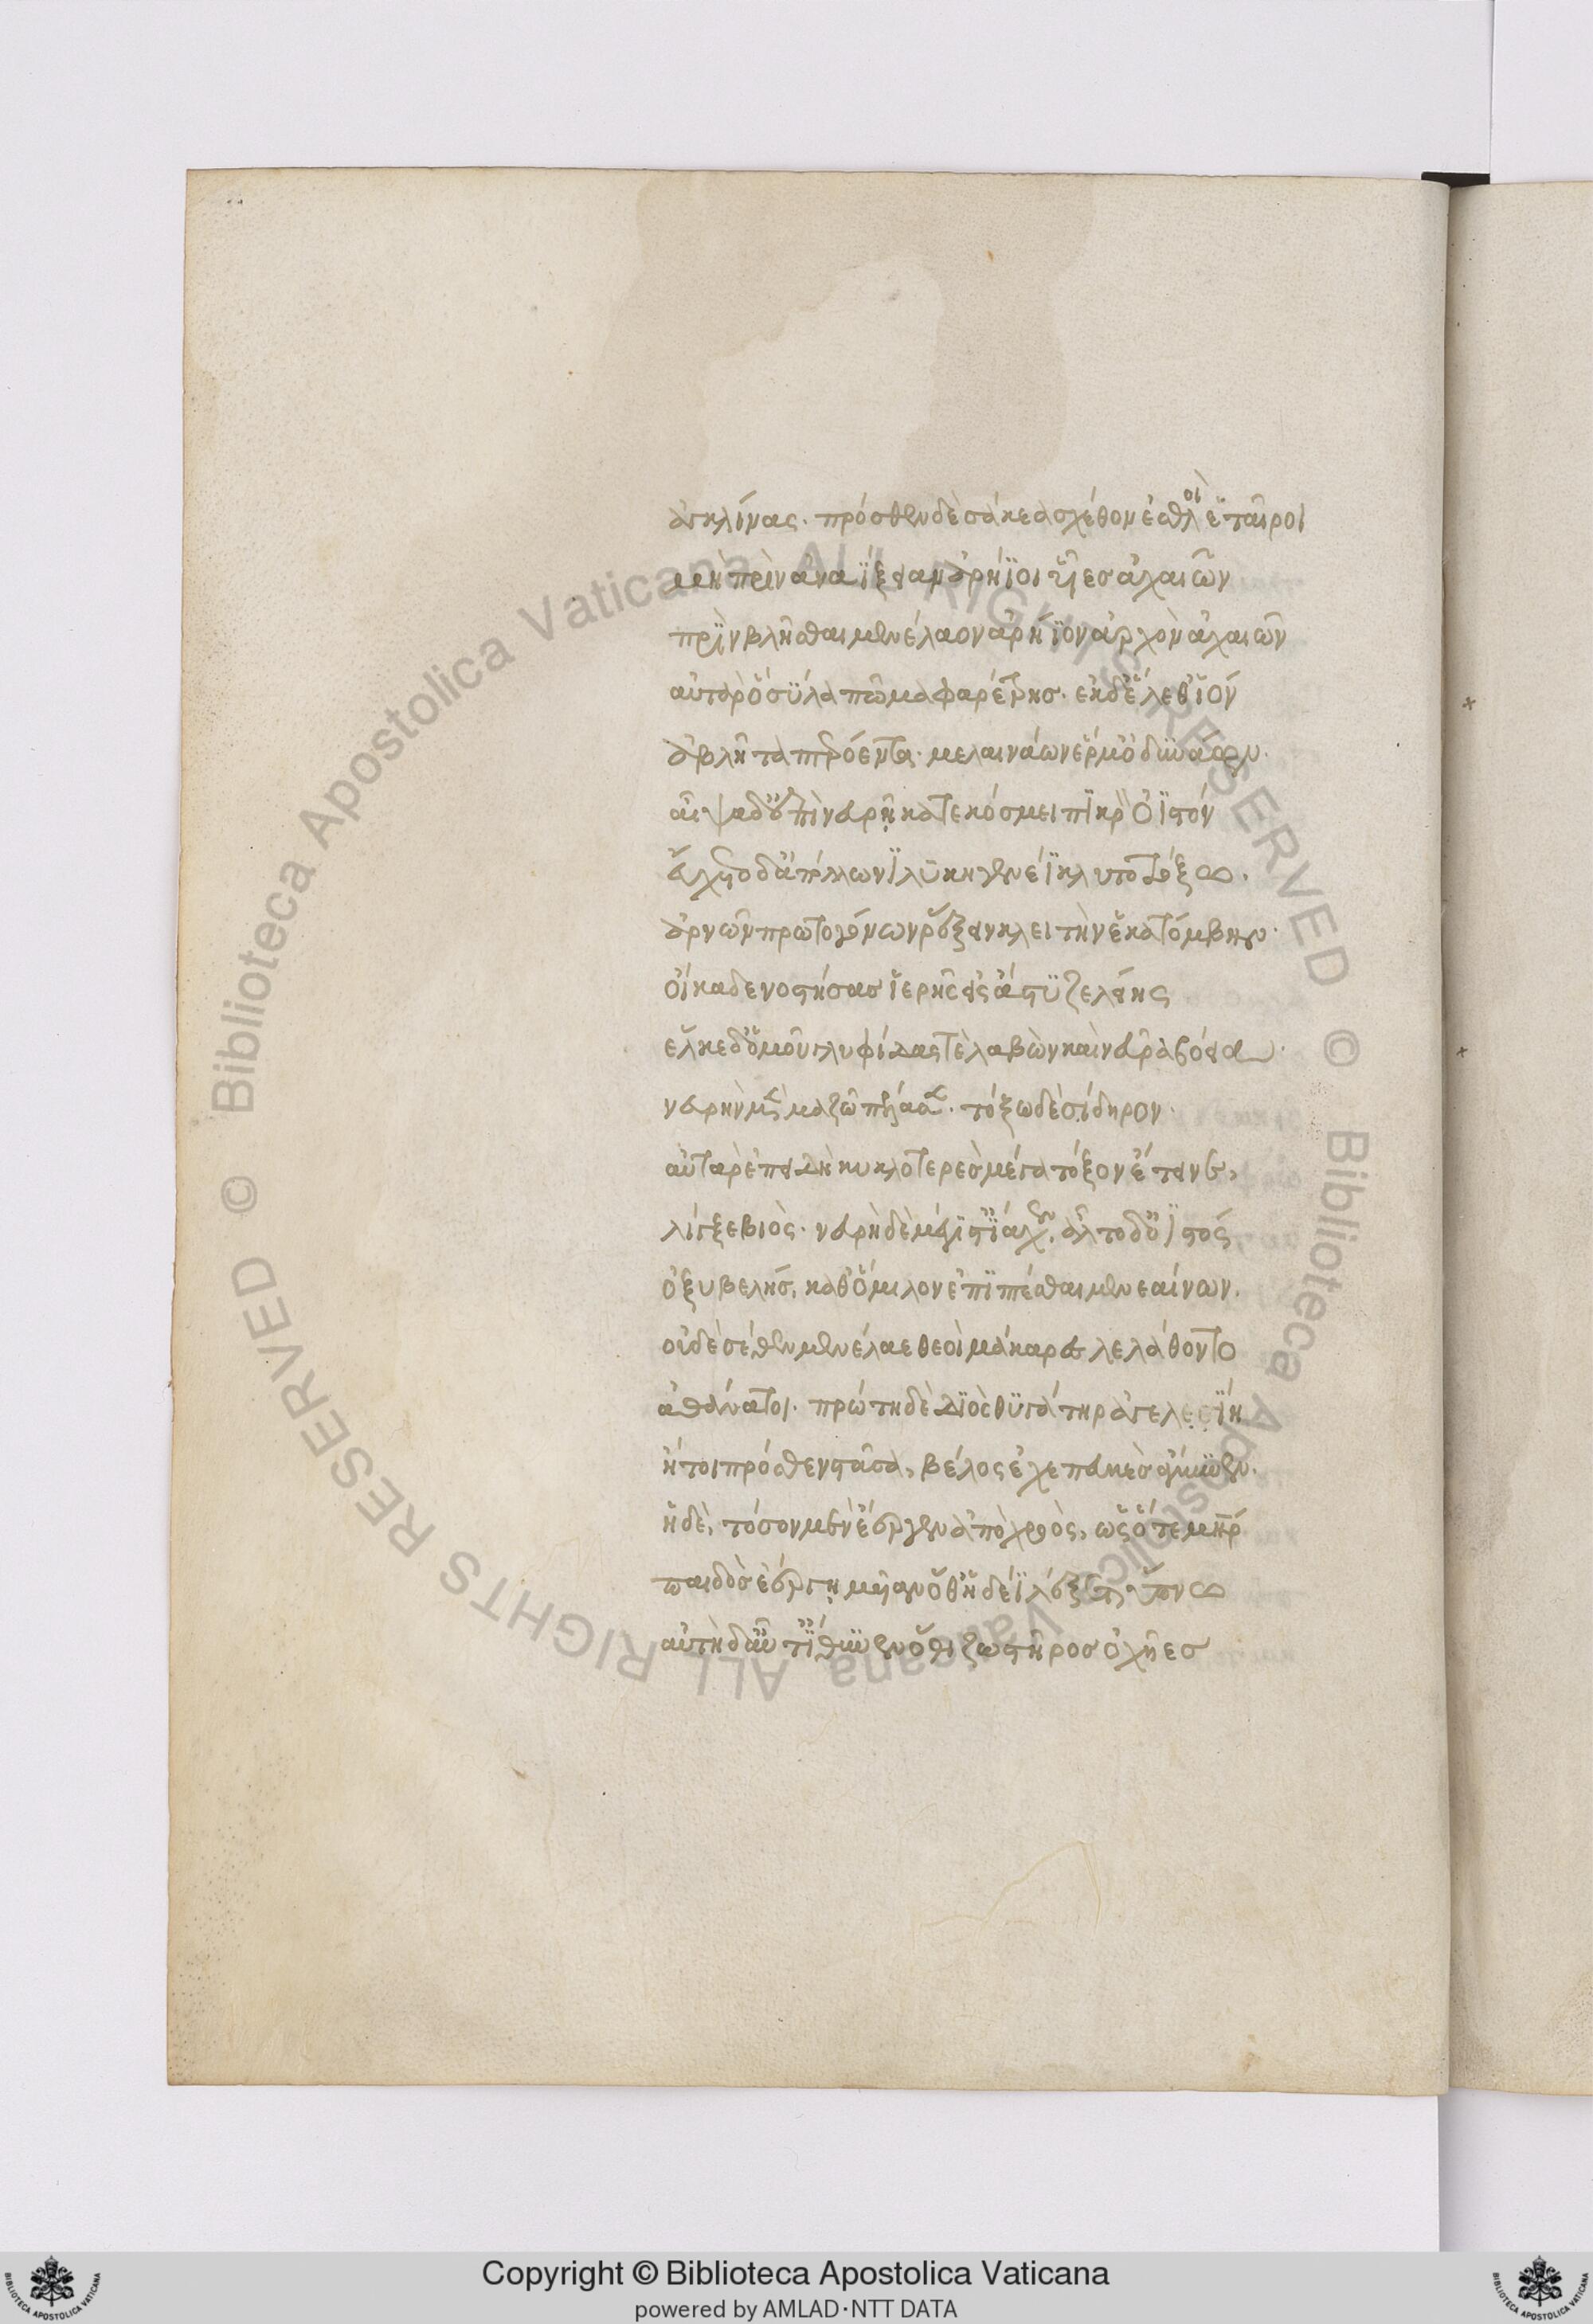 ἀγκλίνας· πρόσθεν δὲ σάκεα σχέθον ἐσθλοὶ ἑταῖροι
μὴ πρὶν ἀναΐξειαν ἀρήϊοι υἷες ἀχαιῶν
πρὶν βλῆσθαι μενέλαον ἀρήϊον ἀρχὸν ἀχαιῶν
αὐτὰρ ὁ σύλα πῶμα φαρέτρης· ἐκ δ' ἕλετ' ἰὸν
ἀβλῆτα πτερόεντα· μελαινάων ἕρμ' ὀδυνάων·
αἶψα δ' ἐπὶ νευρῇ κατεκόσμει πικρὸν ὀϊστόν
εὔχετο δ' ἀπόλλωνι λυκηγενέϊ κλυτοτόξω·
ἀρνῶν πρωτογόνων ῥέξειν κλειτὴν ἑκατόμβην·
οἴκαδε νοστήσας ἱερῆς εἰς ἄστυ ζελείης
ἕλκε δ' ὁμοῦ γλυφίδας τε λαβὼν καὶ νεῦρα βόεια·
νευρὴν μὲν μαζῶ πέλασεν· τόξω δὲ σίδηρον·
αὐτὰρ ἐπειδὴ κυκλοτερὲς μέγα τόξον ἔτεινε,
λίγξε βιὸς· νευρὴ δὲ μέγ' ἴαχεν, ἆλτο δ' ὀϊστὸς
ὀξυβελὴς, καθ' ὅμιλον ἐπιπτέσθαι μενεαίνων.
οὐδὲ σέθεν μενέλαε θεοὶ μάκαρες λελάθοντο
ἀθάνατοι· πρώτη δὲ διὸς θυγάτηρ ἀγελείη
ἥ τοι πρόσθεν στᾶσα, βέλος ἐχεπευκὲς ἄμυνεν.
ἡ δὲ, τόσον μὲν ἔεργεν ἀπὸ χροὸς, ὡς ὅτε μήτηρ
παιδὸς ἐέργῃ μυῖαν ὅθ' ἡδέϊ λέξεται ὕπνω
αὐτὴ δ' αὖτ' ἴθυνεν ὅθι ζωστῆρος ὀχῆες
Copyright © Biblioteca Apostolica Vaticana
powered by AMLAD·NTT DATA